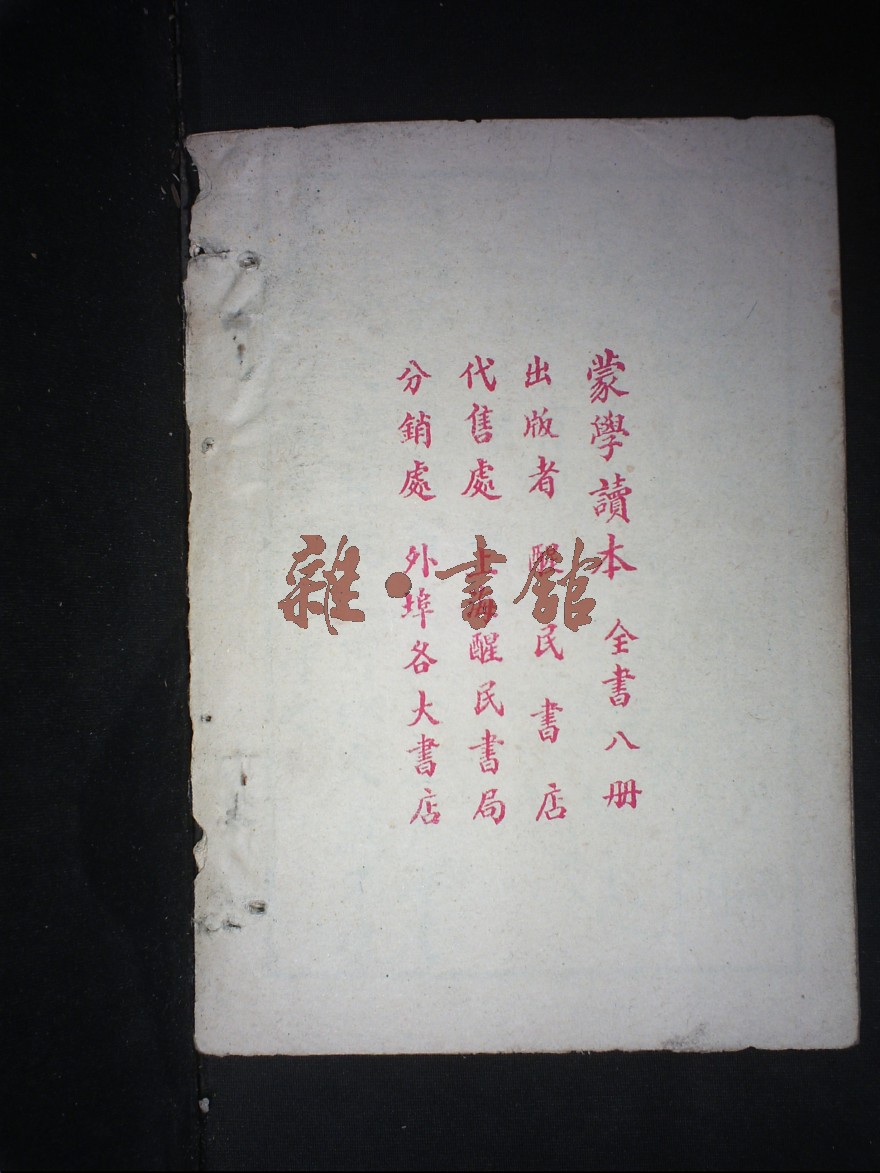 蒙學讀本 全書八册
出版者 醒民書店
代售處 上海醒民書局
分銷處 外埠各大書店
雜·書館